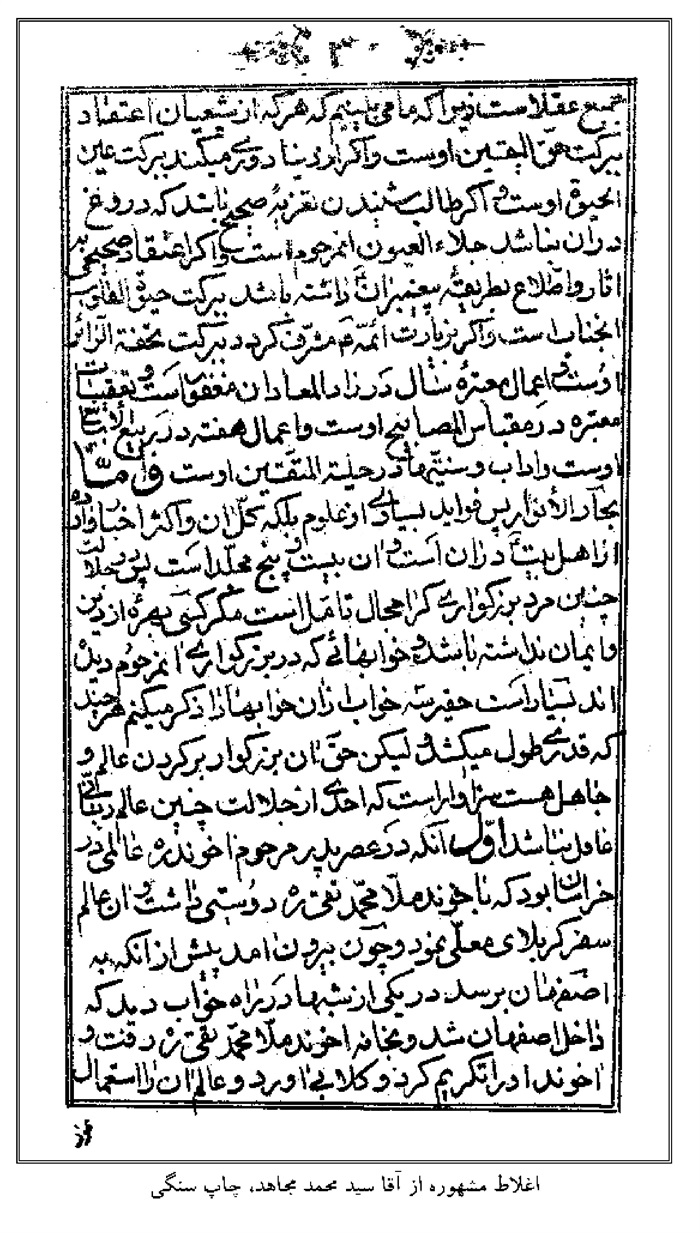 ۳۰
جمیع عقلاست زیرا که ما می بینیم که هر که از شعیان اعتقاد
ببرکت حقّ الیقین اوست و اگر از دنیا دوری میکند ببرکت عین
الحیوة اوست و اگر طالب شنیدن تعزیهٔ صحیح باشد که دروغ
در آن نباشد جلاء العیون انمرحوم است و اگر اعتقاد صحیحی به
اثار و اطّلاع بطریقهٔ پیغمبران داشته باشد ببرکت حیوة القلوب
انجناب است و اگر بزیارت ائمّه ع مشرّف گردد ببرکت تحفة الزائر
اوست و اعمال معتبرهٔ سال در زاد المعاد ان مغفور است و تعقیبات
معتبره در مقباس المصابیح اوست و اعمال هفته در ربیع الاسابیع
اوست و اداب و سنتیها در حلیة المتقین اوست و امّا
بحار الأنوار پس فواید بسیاری از علوم بلکه کلّ ان و اکثر اخبار وارده
از اهل بیت در ان است و ان بیست و پنج مجلّد است پس در جلالت
چنین مرد بزرکواری کرا مجال تامّل است مکر کسی بهرهٔ از دین
و ایمان نداشته باشد و خوابهائی که در بزرکواری انمرحوم دیده
اند بسیار است حقیر سه خواب از ان خوابها را ذکر میکنم هر چند
که قدری طول میکشد و لیکن حقّ ان بزرکوار بر کردن عالم و
جاهل هست سزاوار است که احدی از جلالت چنین عالم ربّانی
غافل نباشد اوّل آنکه در عصر پدر مرحوم اخوند ره عالمی در
خراسان بود که با خوند ملّا محمّد تقی ره دوستی داشت و ان عالم
سفر کربلای معلّی نمود و چون بیرون امد پیش از انکه به
اصفهان برسد در یکی از شبها در راه خواب دید که
داخل اصفهان شد و بخانه اخوند ملّا محمّد تقی ره رفت و
اخوند او را تکریم کرد و کلابی اورد و عالم ان را استعمال
اغلاط مشهوره از آقا سید محمد مجاهد، چاپ سنگی